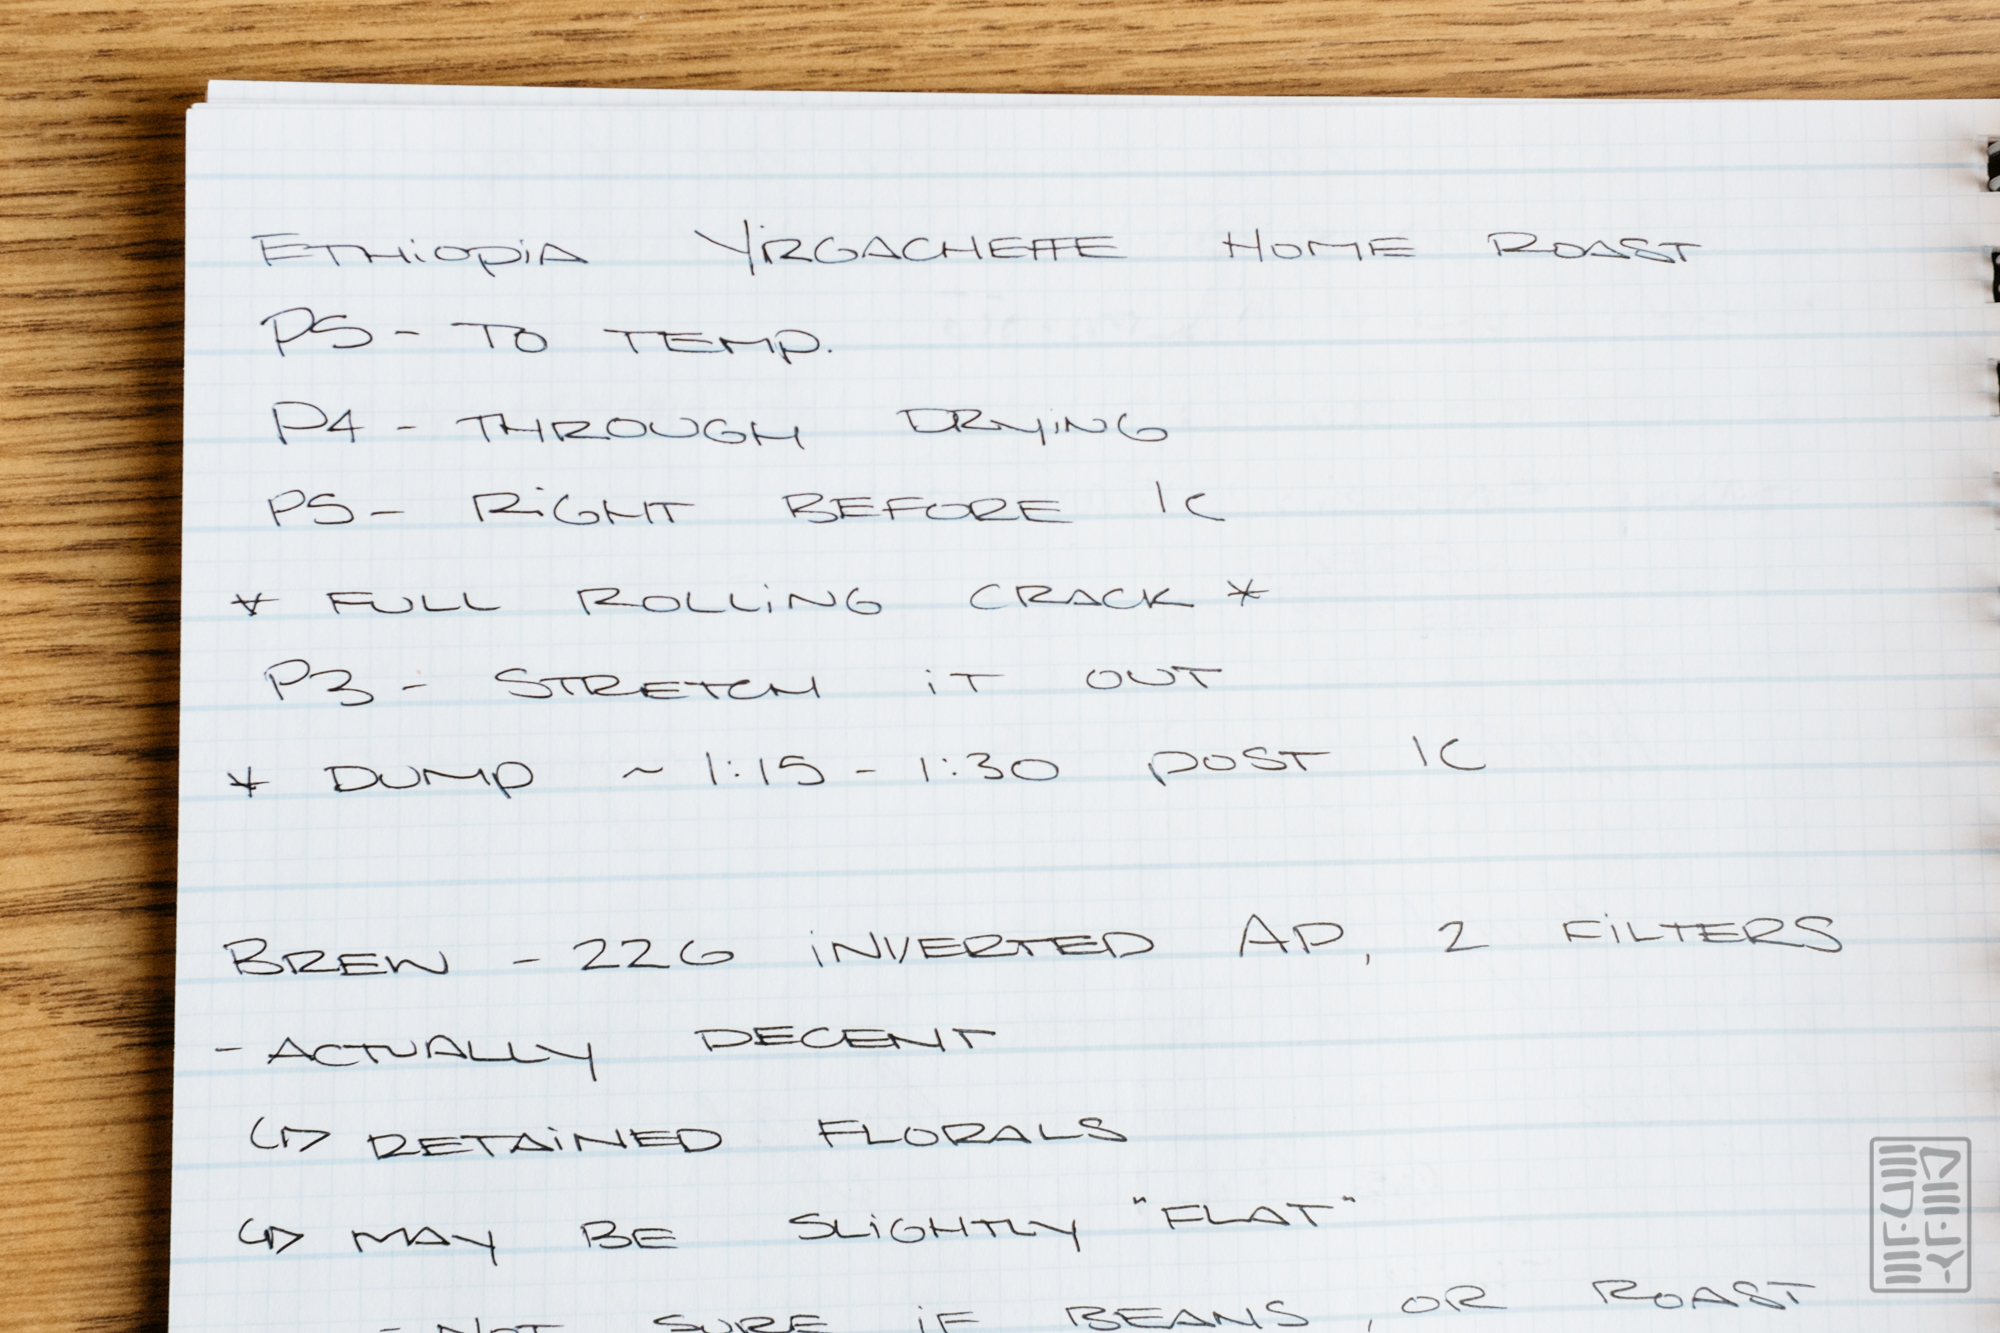 ETHiOPiA YiRGACHEFFE HOME ROAST
P5 - TO TEMP.
P4 - THROUGH DRYiNG
P5 - RiGHT BEFORE 1C
* FULL ROLLiNG CRACK *
P3 - STRETCH iT OUT
* DUMP ~ 1:15 - 1:30 POST 1C
BREW - 22G iNVERTED AP, 2 FiLTERS
- ACTUALLY DECENT
↳ RETAiNED FLORALS
↳ MAY BE SLiGHTLY "FLAT"
- NOT SURE iF BEANS, OR ROAST